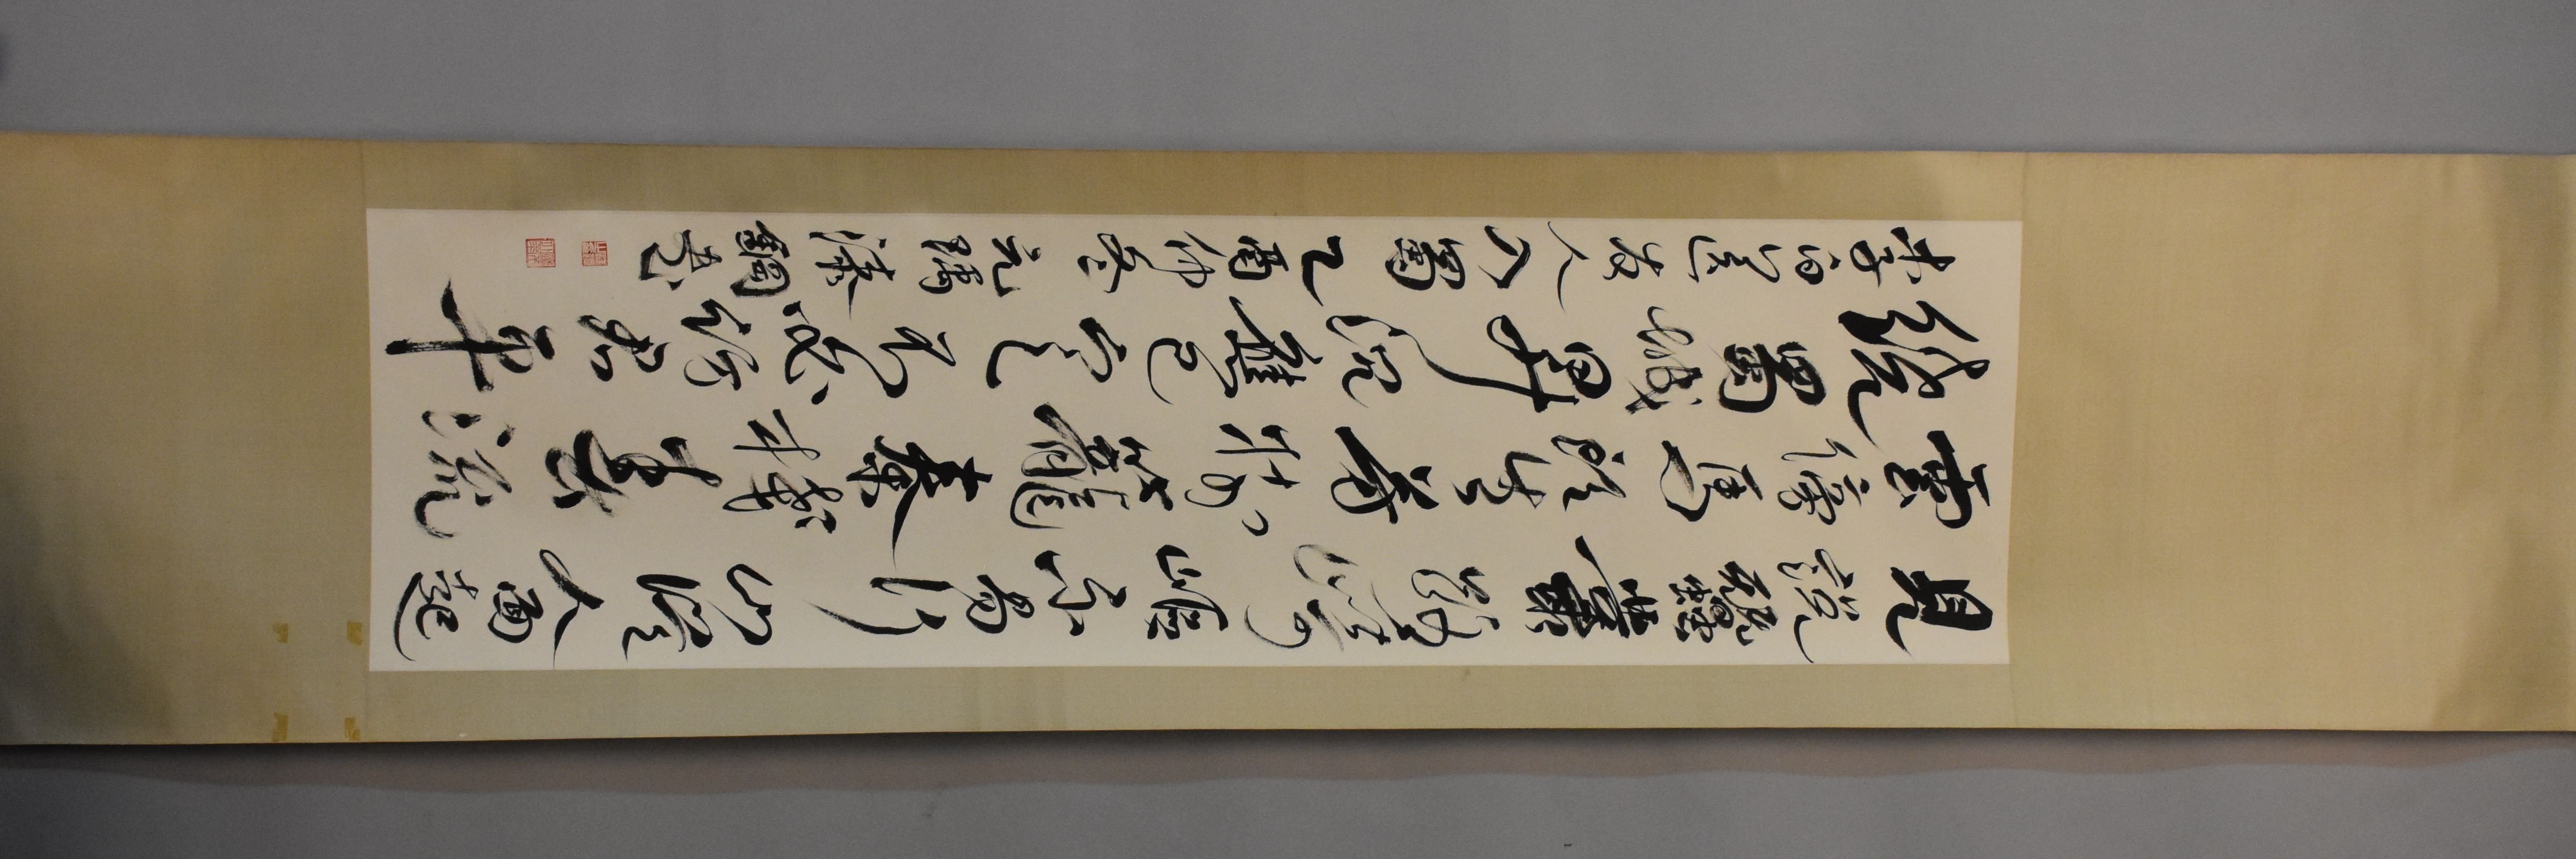 見說蠶叢路崎嶇不易行山從人面起
雲傍馬頭生芳樹籠秦棧春流
遶蜀城升沉應已定不必問君平
李白送友人入蜀乙酉仲冬漆鋼書